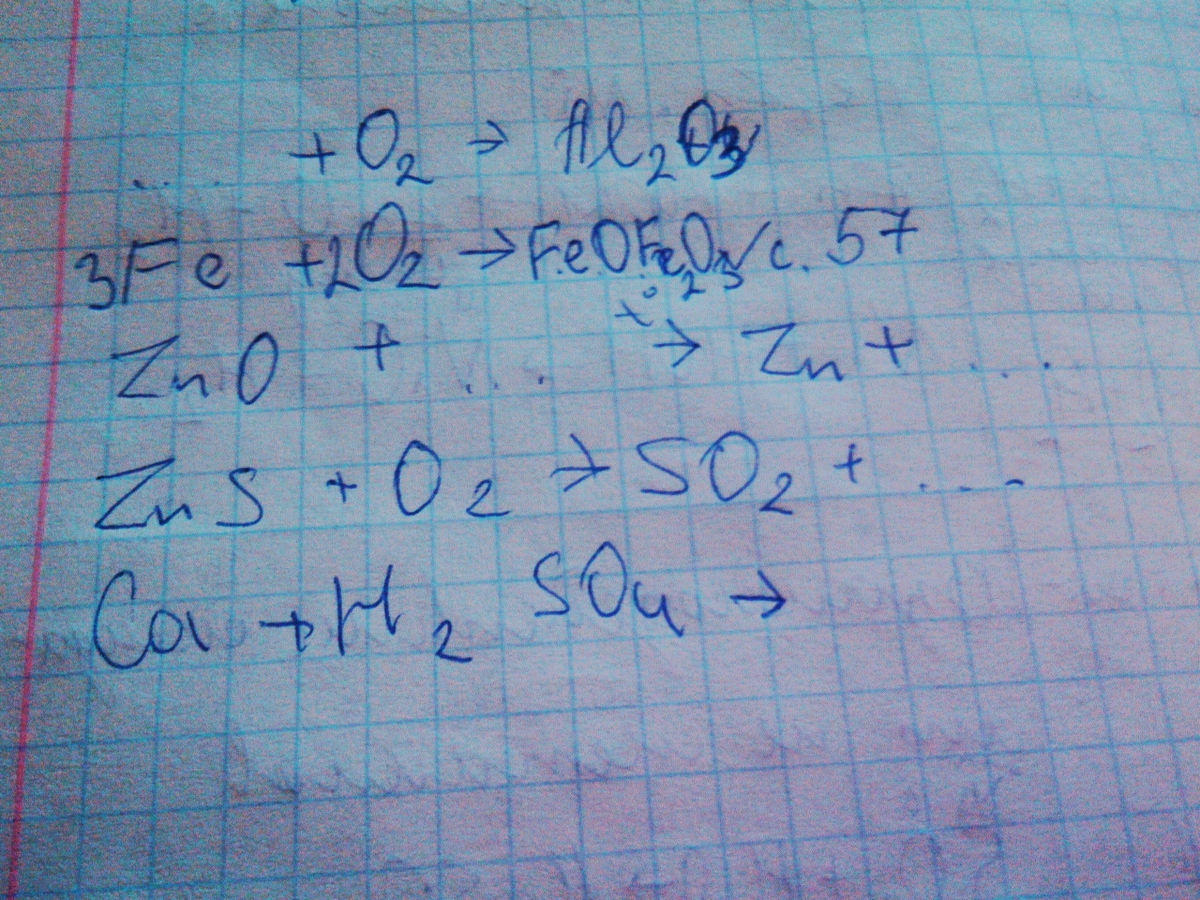 .... + O₂ → Al₂O₃
3Fe + 2O₂ → FeOFe₂O₃/с. 57
ZnO + ... t° → Zn + ...
ZnS + O₂ → SO₂ + ...
Ca + H₂SO₄ →